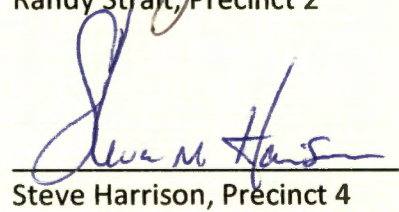 Randy Strait, Precinct 2
Steve M Harrison
Steve Harrison, Precinct 4